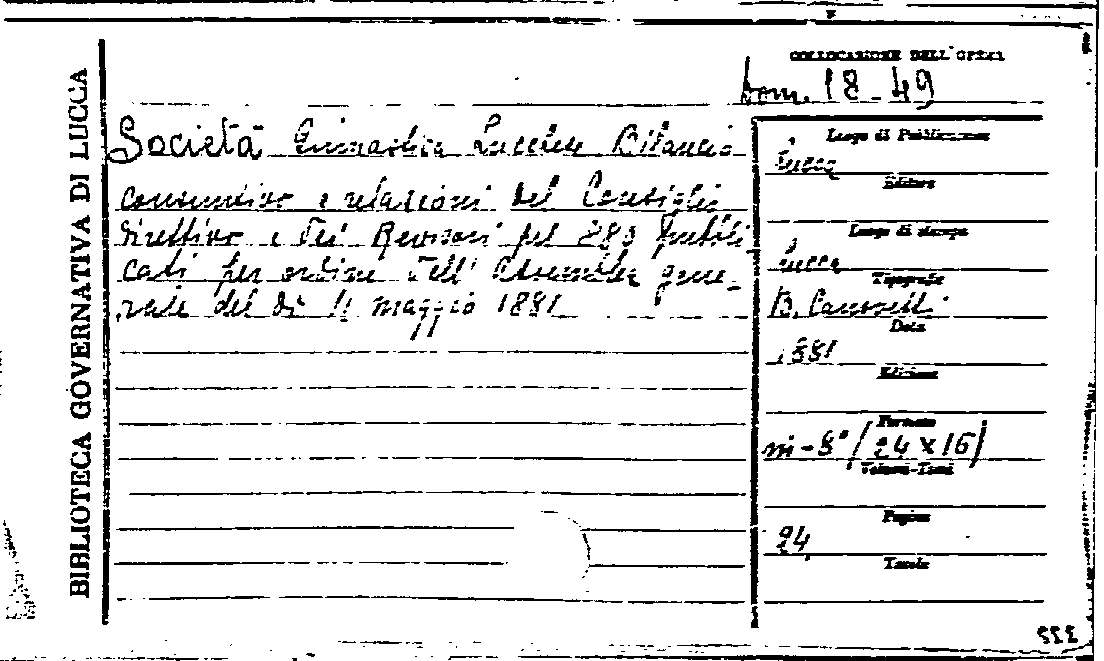 BIBLIOTECA GOVERNATIVA DI LUCCA
COLLOCAZIONE DELL'OPERA
bom. 18-49
Società Ginnastica Lucchese Bilancio
consuntivo e relazioni del Consiglio
direttivo e dei Revisori pel 1880 pubbli
cati per ordine dell' Assemblea gene-
rale del dì 11 maggio 1881
Luogo di Pubblicazione
Lucca
Editore
Luogo di stampa
Lucca
Tipografia
B. Canovetti
Data
1881
Edizione
Formato
in-8° / 24 x 16/
Volumi-Tomi
Pagine
24
Tavole